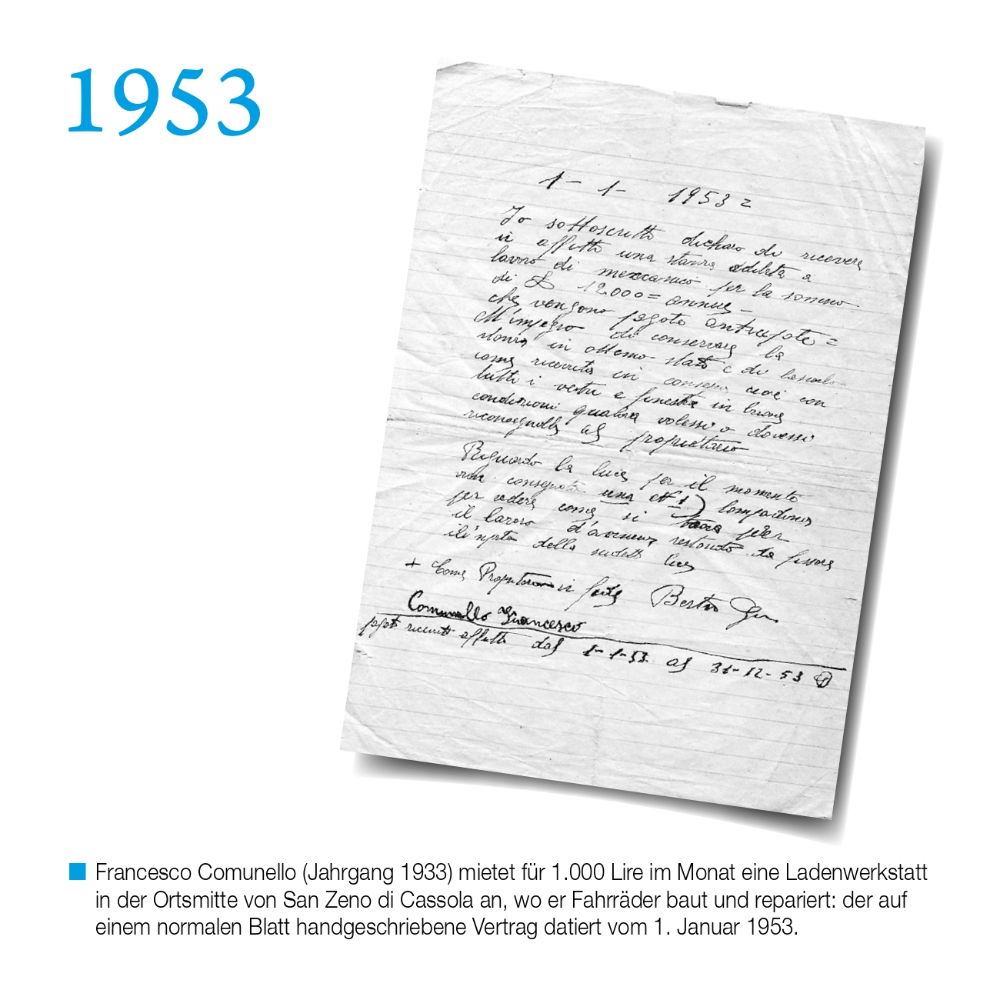 1953
1 - 1 - 1953 =
Io sottoscritto dichiaro di ricevere
in affitto una stanza adibita a
lavoro di meccanico per la somma
di £ 12.000 = annue -
che vengono pagate anticipate =
M'impegno di conservare la
stanza in ottimo stato e di
come ricevuta in consegna cioè con
tutti i vetri e finestre in buone
condizioni qualora volessi o dovessi
riconsegnarla al proprietario
Riguardo la luce per il momento
una (N° 1) lampadina
per vedere come si per
il lavoro d'avvenire restando da
della luce
+ Come Proprietario in fede
Comunello Francesco
affitto dal 1-1-53 al 31-12-53
Francesco Comunello (Jahrgang 1933) mietet für 1.000 Lire im Monat eine Ladenwerkstatt
in der Ortsmitte von San Zeno di Cassola an, wo er Fahrräder baut und repariert: der auf
einem normalen Blatt handgeschriebene Vertrag datiert vom 1. Januar 1953.